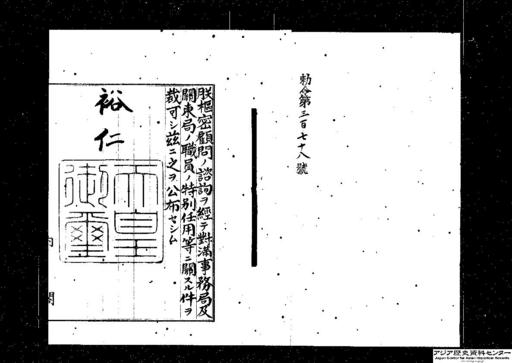 勅令第三百七十八號
朕樞密顧問ノ諮詢ヲ經テ對滿事務局及
關東局ノ職員ノ特別任用等ニ關スル件ヲ
裁可シ茲ニ之ヲ公布セシム
裕仁
天皇御璽
内
閣
アジア歴史資料センター
Japan Center for Asian Historical Records